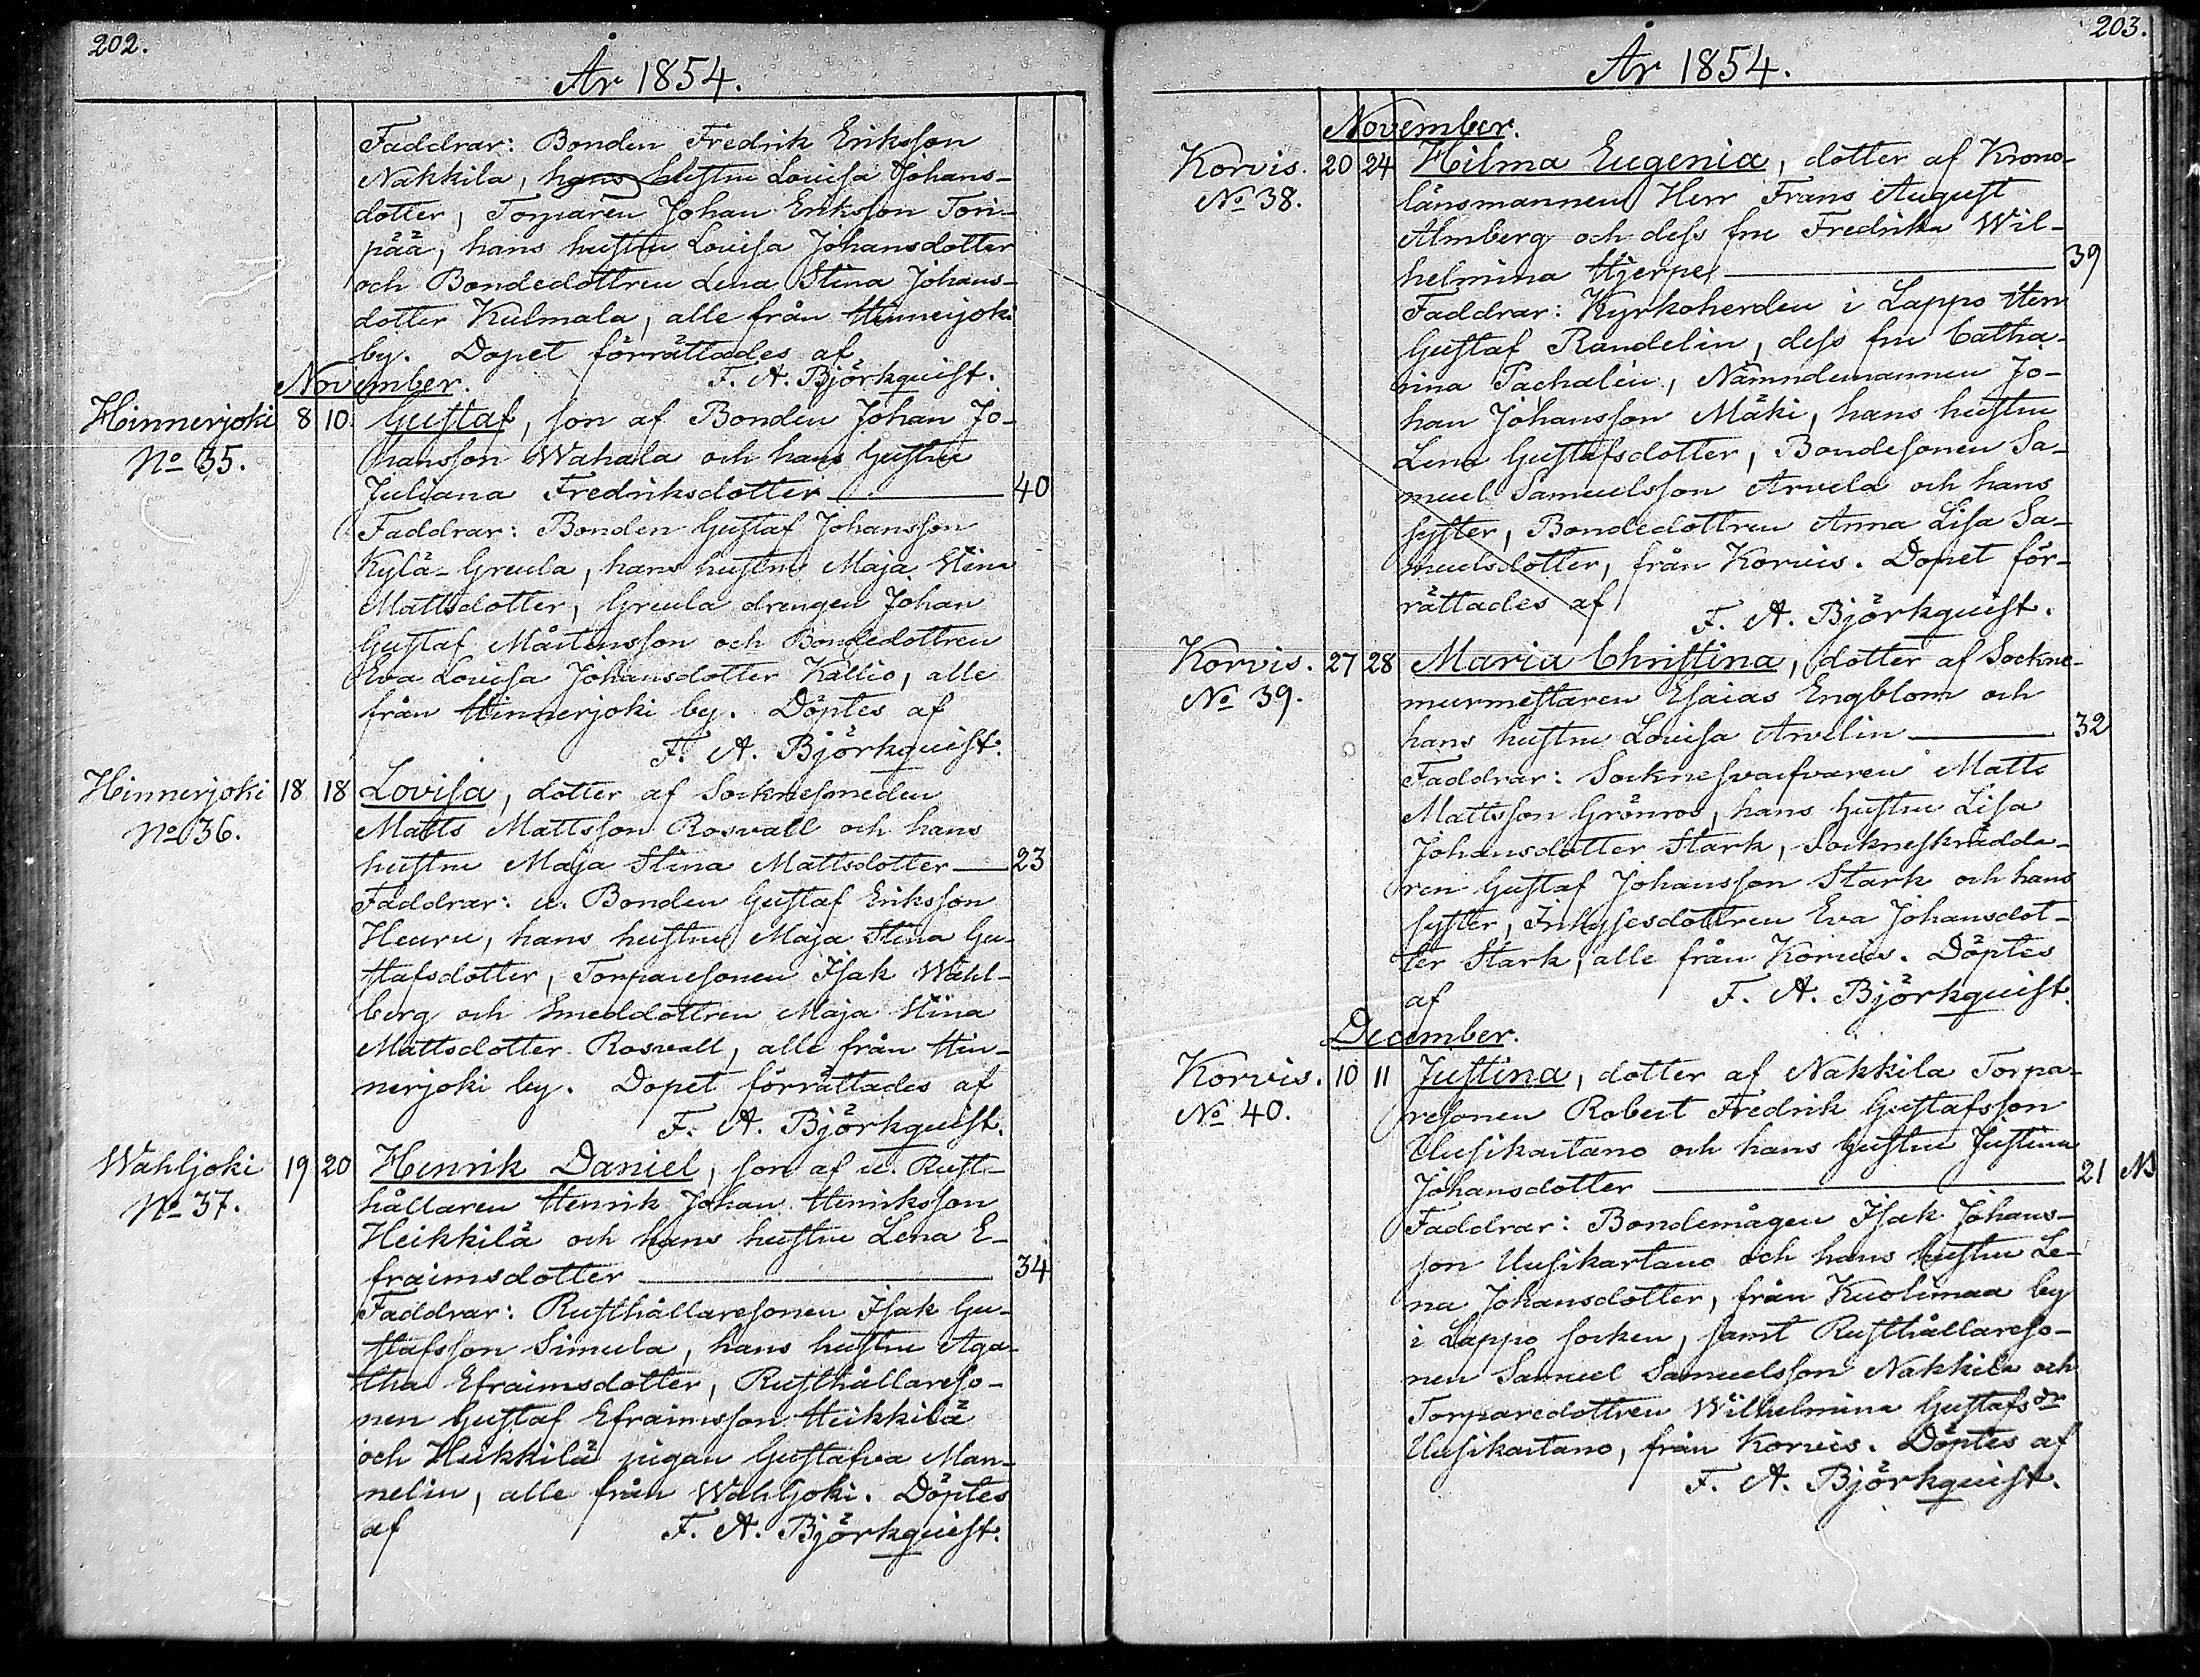 202.
År 1854.
Faddrar: Bonden Fredrik Eriksson
Nakkila, hans hustru Lovisa Johans-
dotter, Torparen Johan Eriksson Tori-
pää, hans hustru Lovisa Johansdotter
och Bondedottren Lena Stina Johans-
dotter Kulmala, alle från Hinnerjoki
by. Dopet förrättades af
F. A. Björkquist.
November.
Hinnerjoki 8 10 Gustaf, son af Bonden Johan Jo-
No 35. hansson Wahala och hans hustru
Juliana Fredriksdotter — 40
Faddrar: Bonden Gustaf Johansson
Kylä-Greula, hans hustru Maja Stina
Mattsdotter, Greula drengen Johan
Gustaf Mårtensson och Bondedottren
Eva Lovisa Johansdotter Kallio, alle
från Hinnerjoki by. Döptes af
F. A. Björkquist.
Hinnerjoki 18 18 Lovisa, dotter af Socknesmeden
No 36. Matts Mattsson Rosvall och hans
hustru Maja Stina Mattsdotter — 23
Faddrar: u. Bonden Gustaf Eriksson
Heuru, hans hustru Maja Stina Gu-
stafsdotter, Torparesonen Isak Wahl-
berg och Smeddottren Maja Stina
Mattsdotter Rosvall, alle från Hin-
nerjoki by. Dopet förrättades af
F. A. Björkquist.
Wahljoki 19 20 Henrik Daniel, son af u. Rust-
No 37. hållaren Henrik Johan Henriksson
Heikkilä och hans hustru Lena E-
fraimsdotter — 34
Faddrar: Rusthållaresonen Isak Gu-
stafsson Simula, hans hustru Aga-
tha Efraimsdotter, Rusthållareso-
nen Gustaf Efraimsson Heikkilä
och Heikkilä pigan Gustafva Man-
nelin, alle från Wahljoki. Döptes
af F. A. Björkquist.
203.
År 1854.
November.
Korvis. 20 24 Hilma Eugenia, dotter af Krono-
No 38. länsmannen Herr Frans August
Almberg och dess fru Fredrika Wil-
helmina Hjerpe — 39
Faddrar: Kyrkoherden i Lappo Herr
Gustaf Randelin, dess fru Catha-
rina Pachalén, Nämndemannen Jo-
han Johansson Mäki, hans hustru
Lena Gustafsdotter, Bondesonen Sa-
muel Samuelsson Arvela och hans
syster, Bondedottren Anna Lisa Sa-
muelsdotter, från Korvis. Dopet för-
rättades af F. A. Björkquist.
Korvis. 27 28 Maria Christina, dotter af Sockne-
No 39. murmestaren Esaias Engblom och
hans hustru Lovisa Arvelin — 32
Faddrar: Socknesvarfvaren Matts
Mattsson Grönros, hans hustru Lisa
Johansdotter Stark, Sockneskrädda-
ren Gustaf Johansson Stark och hans
syster, Inhysesdottren Eva Johansdot-
ter Stark, alle från Korvis. Döptes
af F. A. Björkquist.
December.
Korvis. 10 11 Justina, dotter af Nakkila Torpa-
No 40. resonen Robert Fredrik Gustafsson
Uusikartano och hans hustru Justina
Johansdotter — 21
Faddrar: Bondemågen Isak Johans-
son Uusikartano och hans hustru Le-
na Johansdotter, från Kuolimaa by
i Lappo socken, samt Rusthållareso-
nen Samuel Samuelsson Nakkila och
Torparedottren Wilhelmina Gustafsdr
Uusikartano, från Korvis. Döptes af
F. A. Björkquist.